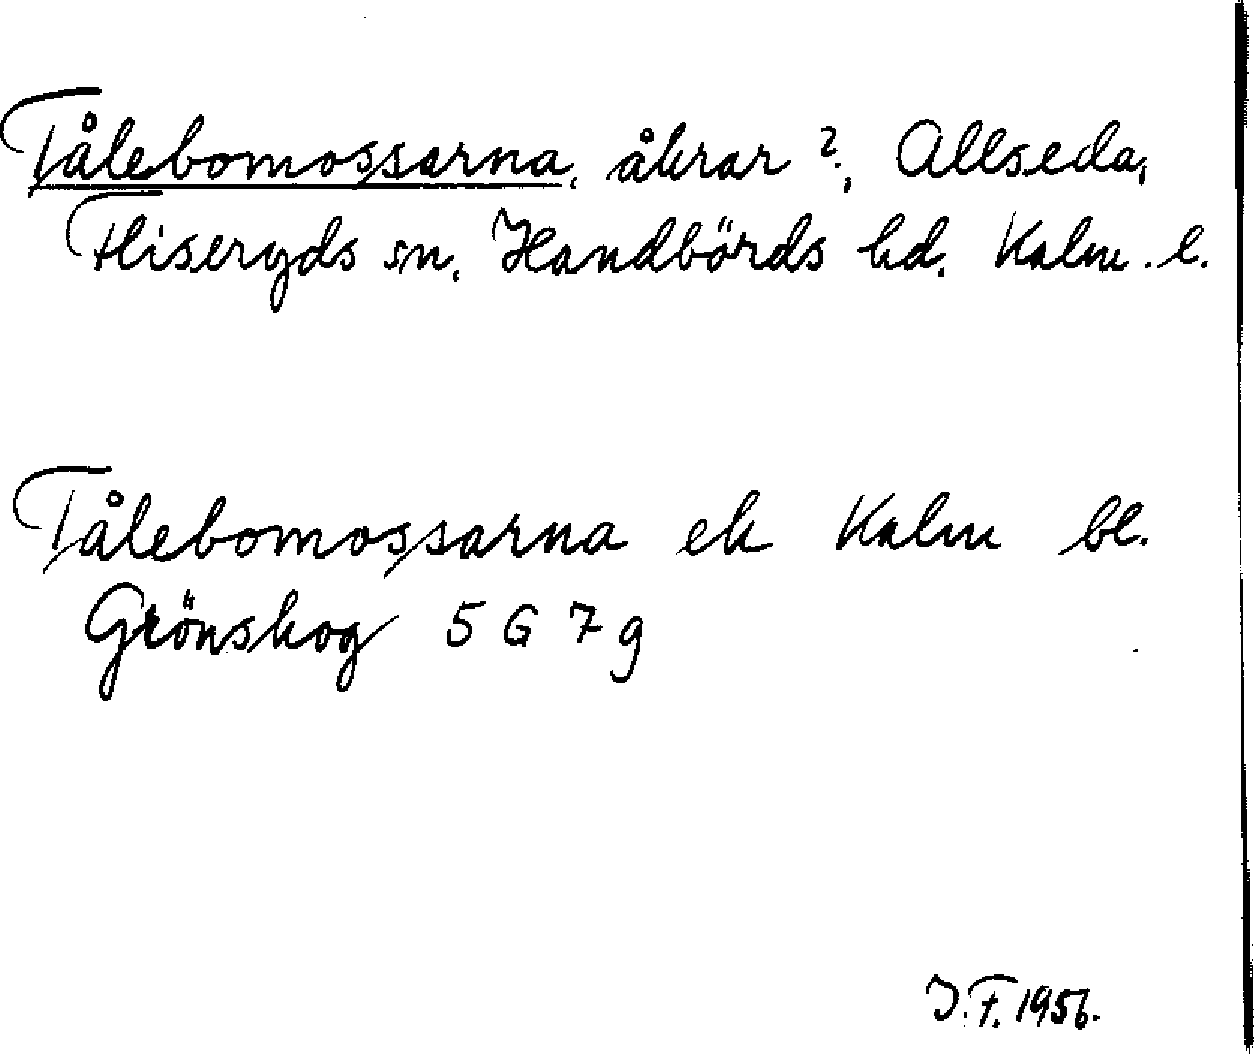 Tålebomossarna, åkrar ?, Allseda,
Fliseryds sn, Handbörds hd, Kalm. l.
Tålebomossarna ek Kalm bl.
Grönskog 5 G 7 g
I. F. 1956.